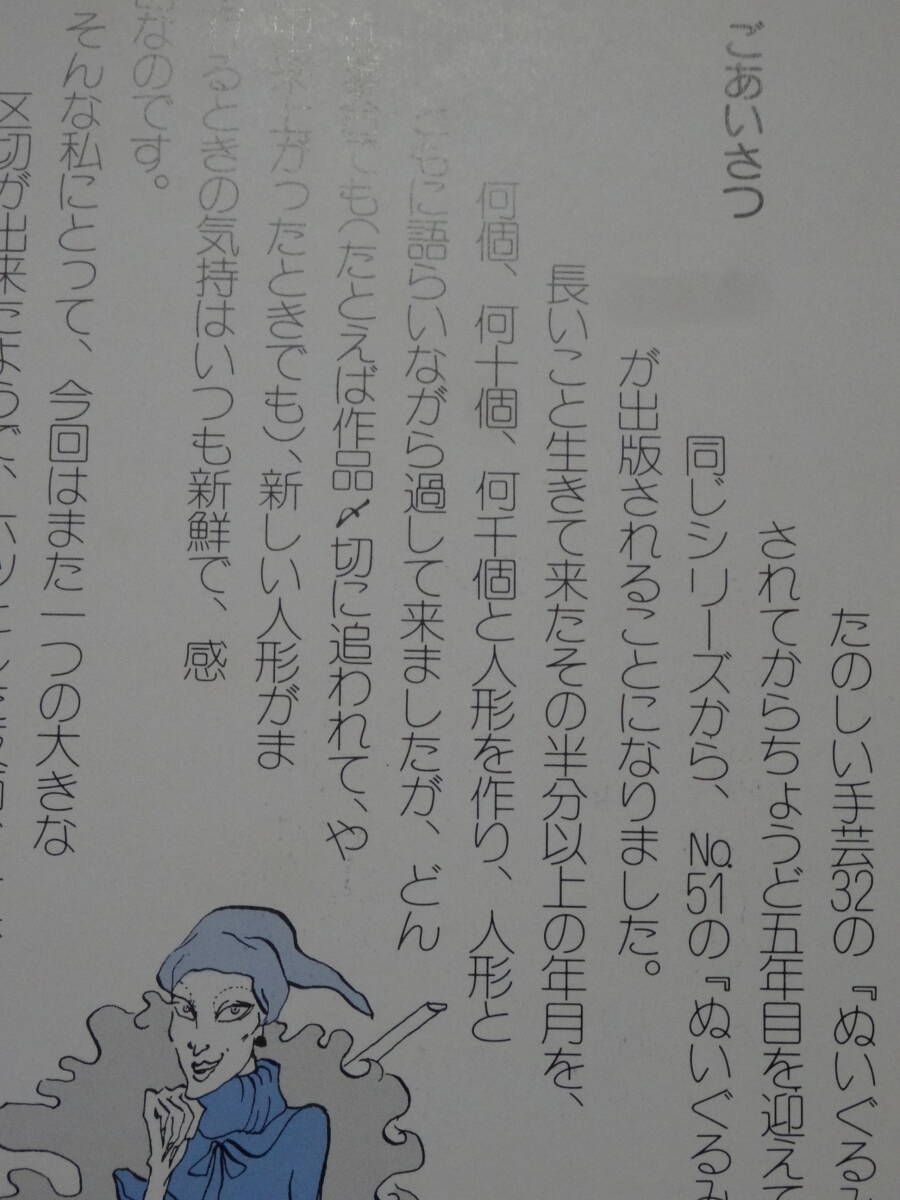 ごあいさつ
たのしい手芸32の『ぬいぐるみ
されてからちょうど五年目を迎えて
同じシリーズから、No.51の『ぬいぐるみ
が出版されることになりました。
長いこと生きて来たその半分以上の年月を、
何個、何十個、何千個と人形を作り、人形と
ともに語らいながら過して来ましたが、どん
ても(たとえば作品〆切に追われて、や
上がったときでも)、新しい人形がま
るときの気持はいつも新鮮で、感
なのです。
そんな私にとって、今回はまた一つの大きな
区切が出来たようで、ホッとした